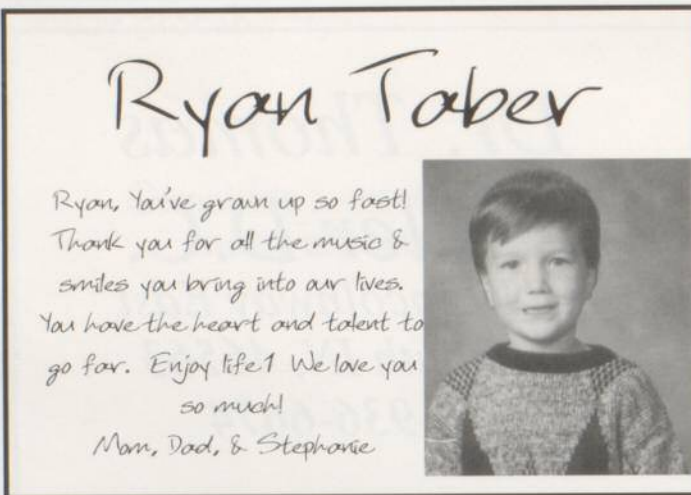 Ryan Taber
Ryan, You've grown up so fast!
Thank you for all the music &
smiles you bring into our lives.
You have the heart and talent to
go far. Enjoy life! We love you
so much!
Mom, Dad, & Stephanie